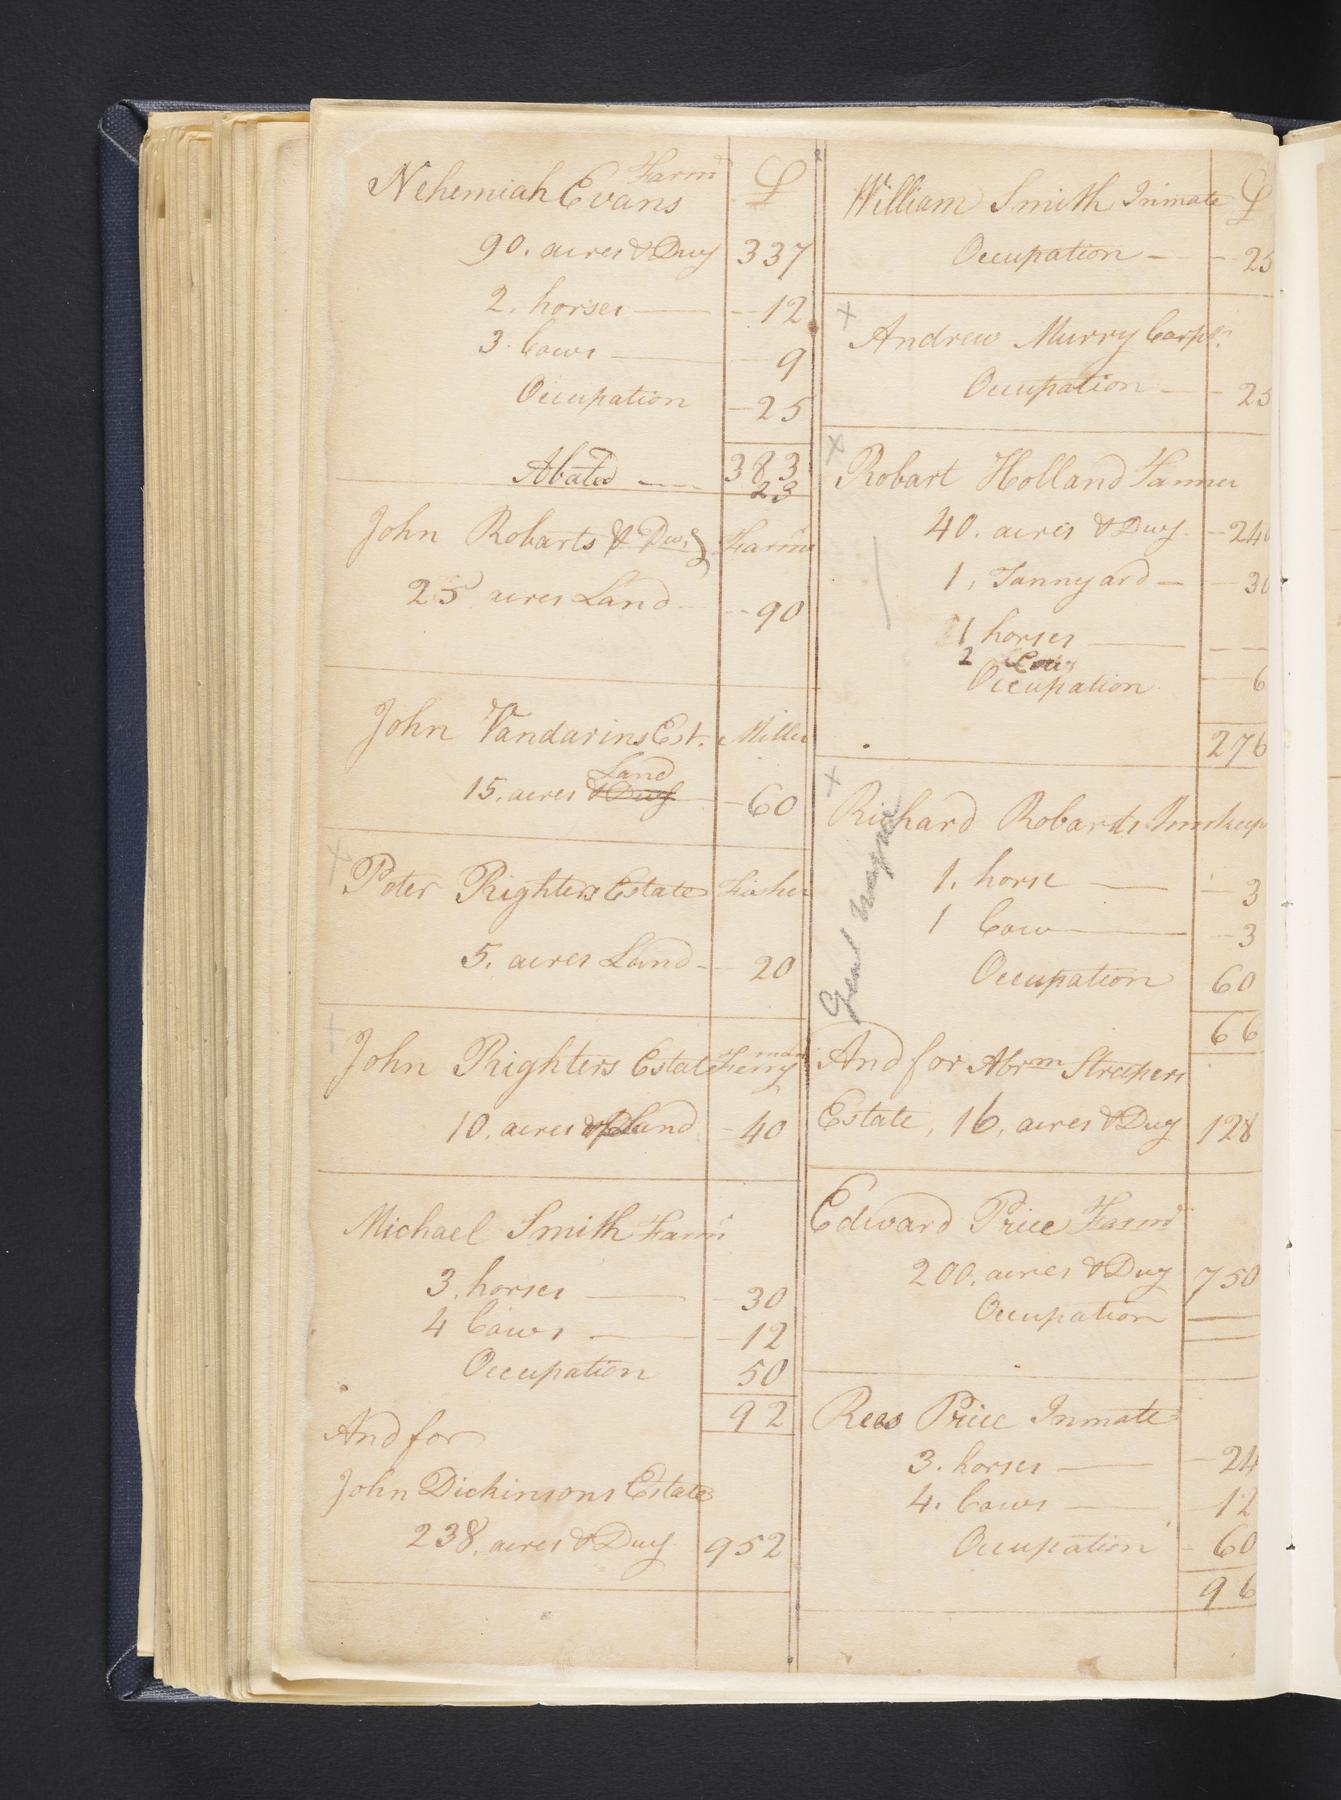 Nehemiah Evans Farmr £
90. acres & Dwg 337
2. horses — 12
3. Cows — 9
Occupation — 25
383
Abated — 23
John Robarts & Dwg Farmr
25 acres Land — 90
John Vandarins Est. Miller
Land
15. acres & Dwg — 60
Peter Righters Estate Fisher
5. acres Land — 20
John Righters Estate Ferryman
10. acres Land — 40
Michael Smith Farmr
3. horses — 30
4 Cows — 12
Occupation 50
92
And for
John Dickinsons Estate
238. acres & Dwg 952
William Smith Inmate £
Occupation — 25
+ Andrew Murry Carpr.
Occupation — 25
+ Robart Holland Tanner
40. acres & Dwg — 240
1, Tannyard — 30
1 horses —
2 Cows
Occupation — 6
276
+ Richard Robards Innkeep
1. horse — 3
1 Cow — 3
Occupation 60
66
And for Abrm Streepers
Estate, 16, acres & Dwg 128
Edward Price Farmr
200. acres & Dwg 750
Occupation —
Rees Price Inmate
3. horses — 24
4. Cows — 12
Occupation - 60
96